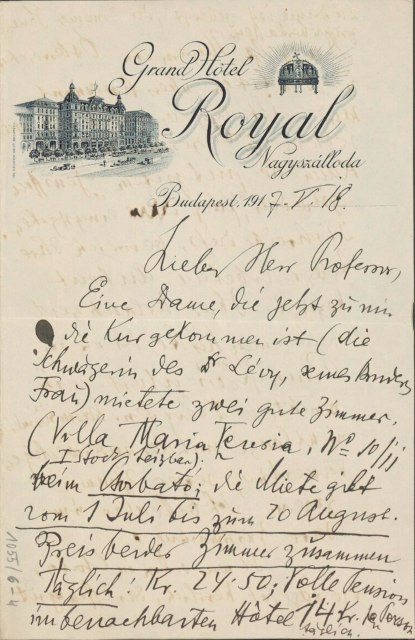 Grand Hôtel
Royal
Nagyszálloda
Budapest, 1917. V. 18.
Lieber Herr Professor,
Eine Dame, die jetzt zu mir
die Kur gekommen ist (die
Schwägerin des Dr Lévy, seines Bruders
Frau) mietete zwei gute Zimmer.
(Villa Maria Teresia, No 10/11
I Stock, heizbar)
beim Csorbató; die Miete gilt
vom 1 Juli bis zum 20 August.
Preis beider Zimmer zusammen
täglich: Kr. 24·50; Volle Pension
im benachbarten Hôtel 14 Kr. pro Person
täglich.
1055/6-4